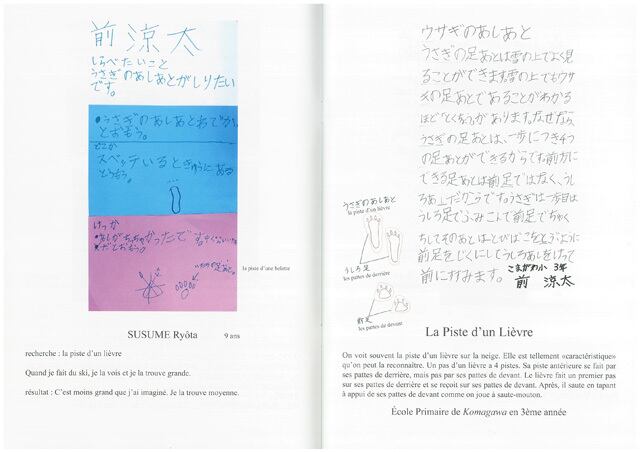 前 涼太
しらべたいこと
うさぎのあしあとがしりたい
です。
•うさぎのあしあとわでかい
とおもう。
スベッているときゅうにある
とおもう。
けっか
la piste d'une belette
SUSUME Ryôta 9 ans
recherche : la piste d'un lièvre
Quand je fait du ski, je la vois et je la trouve grande.
résultat : C'est moins grand que j'ai imaginé. Je la trouve moyenne.
ウサギのあしあと
うさぎの足あとは雪の上でよく見
ることができます。雪の上でもウサ
ギの足あとであることがわかる
ほどとくちょうがあります。なぜなら
うさぎの足あとは、一歩につき4つ
の足あとができるからです。前がわに
できる足あとは前足ではなく、うし
ろ足だからです。うさぎは一歩目は
うしろ足でふみこんで前足でちゃく
ちしてそのあとはとびばこをとぶように
前足をじくにしてうしろあしをけって
前にすすみます。
こまがわ小 3年
前 涼太
うさぎのあしあと
la piste d'un lièvre
うしろ足
les pattes de derrière
前足
les pattes de devant
La Piste d'un Lièvre
On voit souvent la piste d'un lièvre sur la neige. Elle est tellement «caractéristique»
qu'on peut la reconnaître. Un pas d'un lièvre a 4 pistes. Sa piste antérieure se fait par
ses pattes de derrière, mais pas par ses pattes de devant. Le lièvre fait un premier pas
sur ses pattes de derrière et se reçoit sur ses pattes de devant. Après, il saute en tapant
à appui de ses pattes de devant comme on joue à saute-mouton.
École Primaire de Komagawa en 3ème année